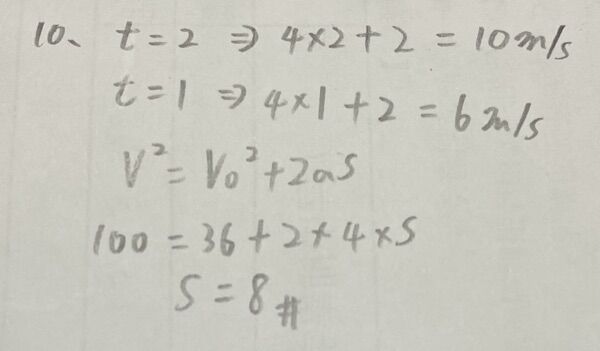 10、 t = 2 ⇒ 4×2+2 = 10 m/s
t = 1 ⇒ 4×1+2 = 6 m/s
V² = V₀² + 2as
100 = 36 + 2×4×S
S = 8 #